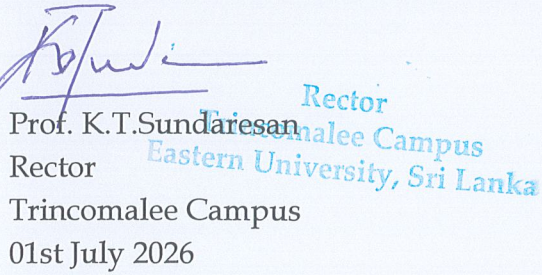 Prof. K.T.Sundaresan
Rector
Trincomalee Campus
01st July 2026
Rector
Trincomalee Campus
Eastern University, Sri Lanka